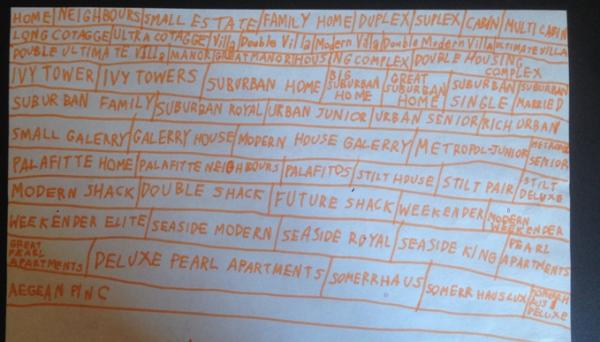 HOME NEIGHBOURS SMALL ESTATE FAMILY HOME DUPLEX SUPLEX CABIN MULTI CABIN
LONG COTAGGE ULTRA COTAGGE Villa Double Villa Modern Villa Double Modern Villa ULTIMATE VILLA
DOUBLE ULTIMATE Villa MANOR GREAT MANOR HOUSING COMPLEX DOUBLE HOUSING COMPLEX
IVY TOWER IVY TOWERS SUBURBAN HOME BIG SUBURBAN HOME GREAT SUBURBAN HOME SUBURBAN SINGLE SUBURBAN MARRIED
SUBURBAN FAMILY SUBURBAN ROYAL URBAN JUNIOR URBAN SENIOR RICH URBAN
SMALL GALERRY GALERRY HOUSE MODERN HOUSE GALERRY METROPOL-JUNIOR METROPOL SENIOR
PALAFITTE HOME PALAFITTE NEIGHBOURS PALAFITOS STILT HOUSE STILT PAIR STILT DELUXE
MODERN SHACK DOUBLE SHACK FUTURE SHACK WEEKENDER MODERN WEEKENDER
WEEKENDER ELITE SEASIDE MODERN SEASIDE ROYAL SEASIDE KING PEARL APARTMENTS
GREAT PEARL APARTMENTS DELUXE PEARL APARTMENTS SOMERRHAUS SOMERR HAUS LUX DELUXE
AEGEAN PINC